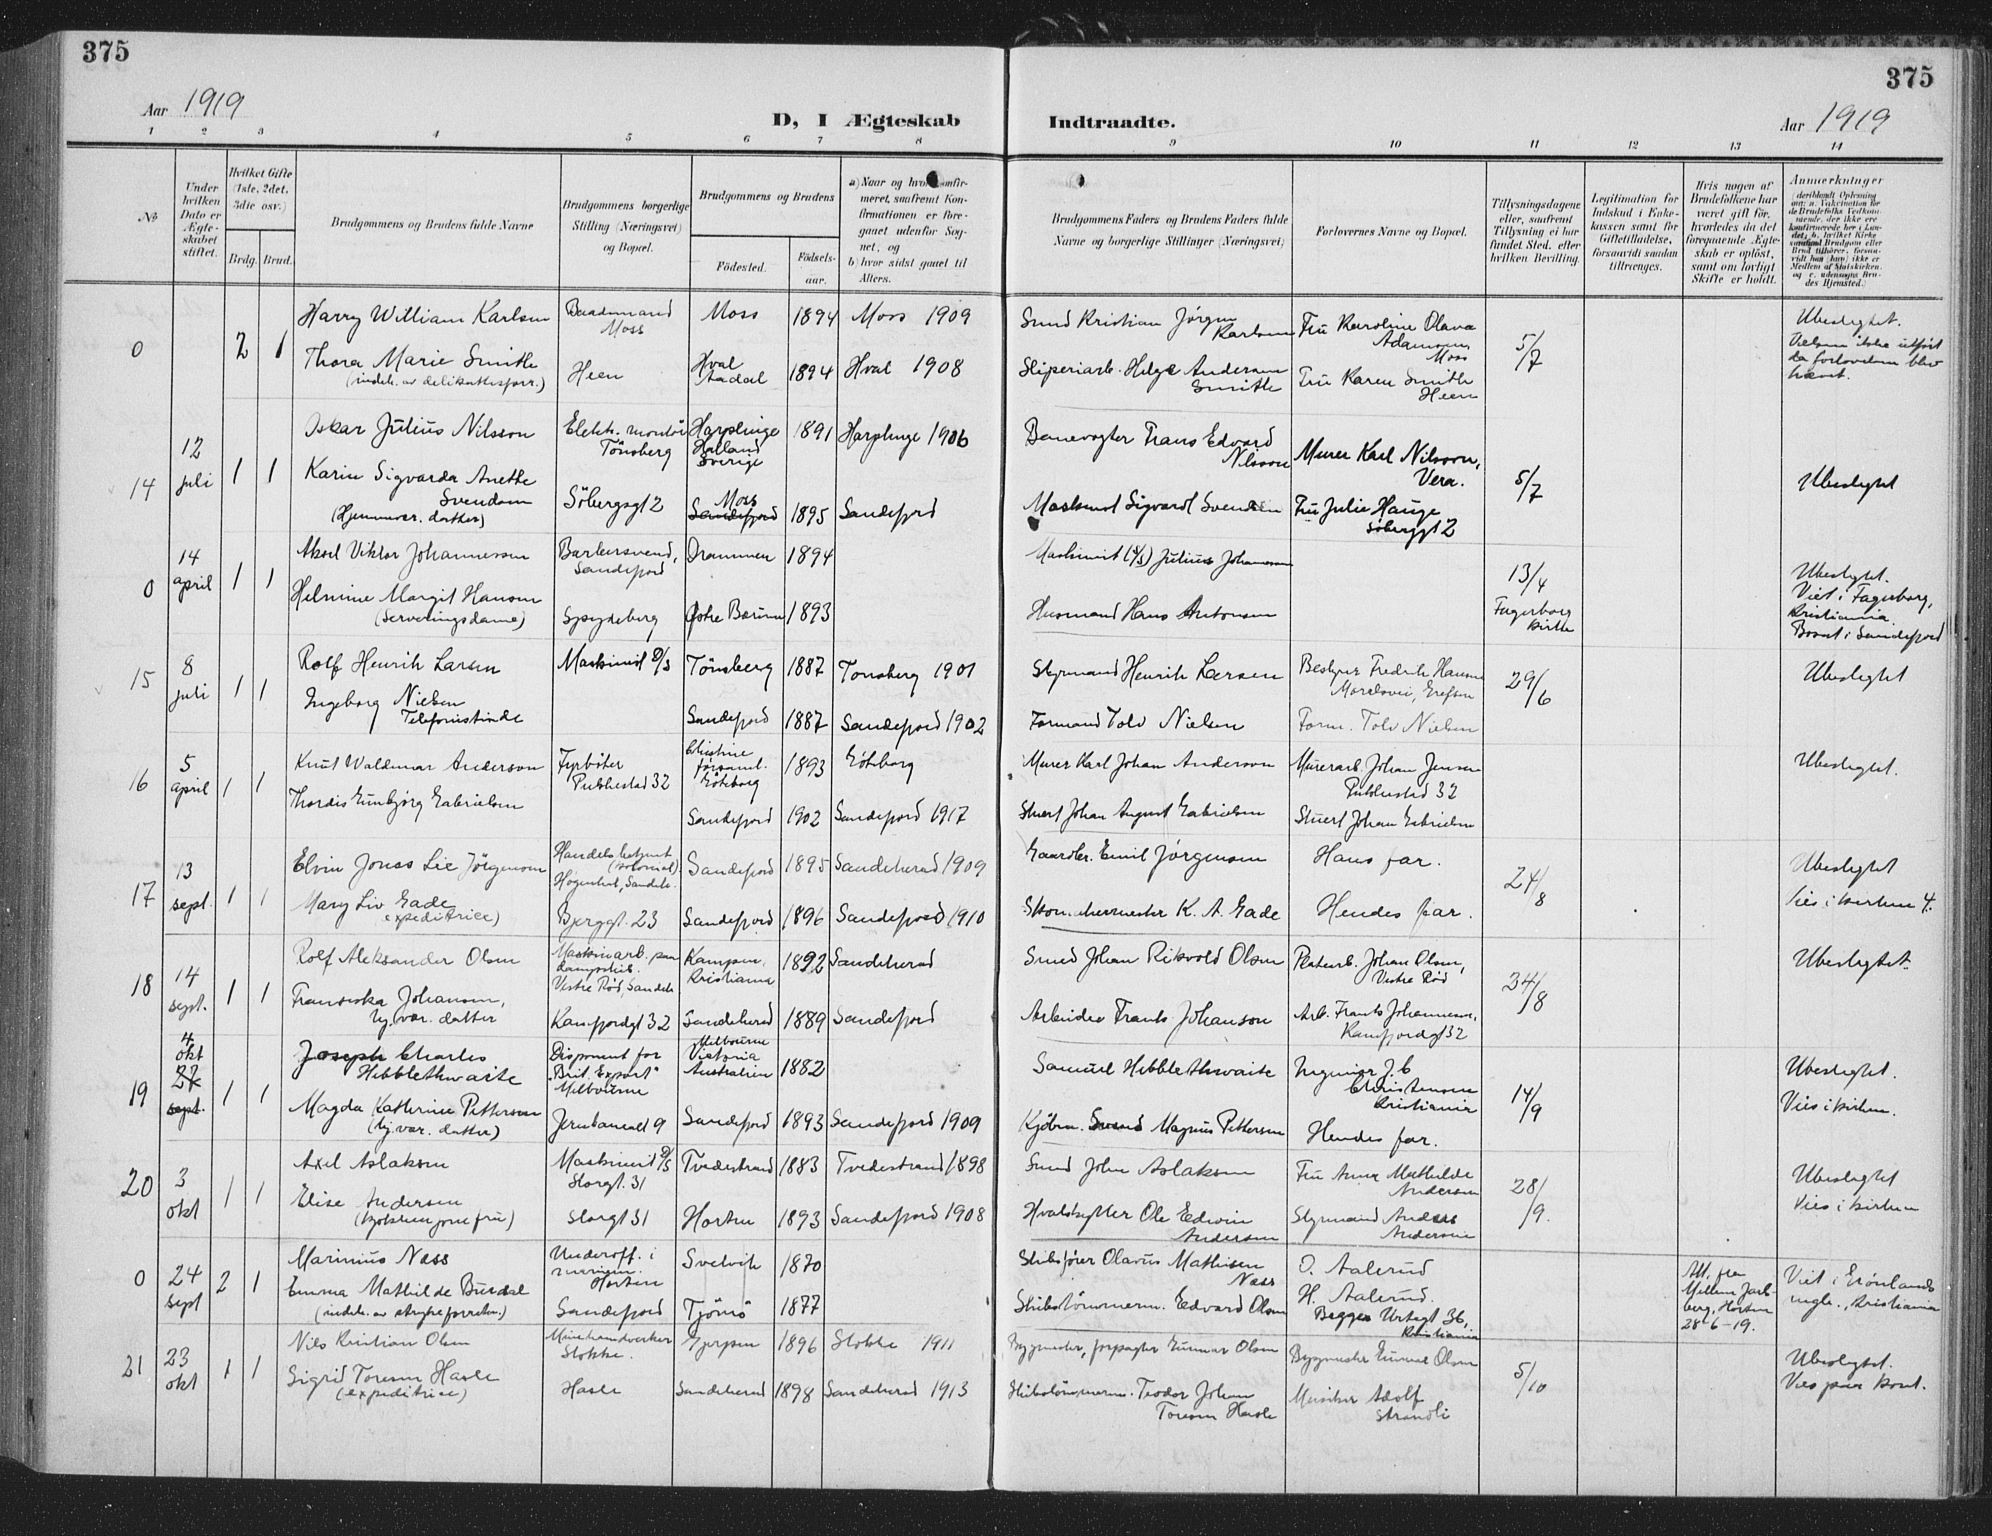 375
375
Aar 1919
D, I Ægteskab Indtraadte.
Aar 1919
1 2 3 4 5 6 7 8 9 10 11 12 13 14
No
Under hvilken Dato er Ægte-skabet stiftet.
Hvilket Gifte (1ste, 2det, 3die osv.)
Brdg. Brud.
Brudgommens og Brudens fulde Navne
Brudgommens borgerlige Stilling (Næringsvei) og Bopæl.
Brudgommens og Brudens
Födested.
Födsels-aar.
a) Naar og hvor konfir-meret, saafremt Kon-firmationen er fore-gaaet udenfor Sog-net, og
b) hvor sidst gaaet til Alters.
Brudgommens Faders og Brudens Faders fulde Navne og borgerlige Stillinger (Næringsvei)
Forlovernes Navne og Bopæl.
Tillysningsdagene eller, saafremt Tillysning ei har fundet Sted, efter hvilken Bevilling.
Legitimation for Indskud i Enke-kassen samt for Giftetilladelse, forsaavidt saadan tiltrænges.
Hvis nogen af Brudefolkene har været gift för, hvorledes da det foregaaende Ægte-skab er oplöst, samt om lovligt Skifte er holdt.
Anmerkninger
0 2 1
Harry William Karlsen Baadsmand Moss Moss 1894 Moss 1909
Smed Kristian Jörgen Karlsen Fru Karoline Olava Adamsen Moss 5/7 Ubeslegtet.
Vielsen ikke utført da forlovelsen blev hævet.
Thora Marie Smith Heen Hval Aadal 1894 Hval 1908
(indeh. av delikatesseforr.)
Sliperiarb. Helge Andersen Smith Fru Karen Smith Heen
14 12 juli 1 1
Oskar Julius Nilsson Elektr. montör Tönsberg Harplinge Halland Sverige 1891 Harplinge 1906
Banevogter Frans Edvard Nilsson Murer Karl Nilsson, Vera. 5/7 Ubeslegtet
Karin Sigvarda Anethe Svendsen Söbergsgt 2 Moss Sandefjord 1895 Sandefjord
(Hjemmevær. datter)
Maskinist Sigvard Svendsen Fru Julie Hauge Söberggt 2
0 14 april 1 1
Aksel Viktor Johannessen Barbersvend, Sandefjord Drammen 1894
Maskinist (d/s) Julius Johannessen 13/4 Fagerborg kirke
Ubeslegtet. Viet i Fagerborg, Kristiania. Bosat i Sandefjord
Helmine Margit Hansen Spydeberg Østre Bærum 1893
(Serveringsdame)
Husmand Hans Antonsen
15 8 juli 1 1
Rolf Henrik Larsen Maskinist D/S Tönsberg 1887 Tönsberg 1901
Styrmand Henrik Larsen Bestyrer Fredrik Hansen 29/6 Ubeslegtet
Ingeborg Nielsen Sandefjord 1887 Sandefjord 1902
Telefonistinde
Formand Tolv Nielsen Form. Tolv Nielsen
16 5 april 1 1
Knut Waldemar Anderson Fyrböter Pukkestad 32 Christine församl. Göteborg 1893 Göteborg
Murer Karl Johan Anderson Murerarb. Johan Jensen Pukkestad 32 Ubeslegtet.
Thordis Gunbjörg Gabrielsen Sandefjord 1902 Sandefjord 1917
Stuert Johan August Gabrielsen Stuert Johan Gabrielsen
17 13 sept. 1 1
Elvin Jonas Lie Jörgensen Handelsbetjent (kolonial) Sandefjord 1895 Sandeherad 1909
Gaardbr. Emil Jörgensen Hans far. 24/8 Ubeslegtet
Mary Liv Gade Bjerggt. 23 Sandefjord 1896 Sandefjord 1910
(expeditrice)
Skomakermester K. A. Gade Hendes far. Vies i kirken 4.
18 14 sept. 1 1
Rolf Aleksander Olsen Maskinarb. paa Vestre Rød, Sandeh. Kampen, Kristiania 1892 Sandeherad
Smed Johan Rikvold Olsen Platearb. Johan Olsen, Vestre Rød 24/8 Ubeslegtet.
Fransiska Johansen, Ranfjordgt 32 Sandeherad 1889 Sandefjord
hj. vær. datter
Arbeider Frants Johanson Arb. Frants Johannessen, Ranfjordgt 32
19 4 okt 27 sept. 1 1
Joseph Charles Hebblethwaite Disponent for "Brit. Export" Melbourne Melbourne Victoria Australien 1882
Samuel Hebblethwaite Ingeniør J. C Christensen Kristiania 14/9 Ubeslegtet.
Magda Kathrine Pettersen Jernbanealt 9 Sandefjord 1893 Sandefjord 1909
(hj. vær. datter)
Kjøbm. Svend Magnus Pettersen Hendes far. Vies i kirken.
20 3 okt 1 1
Axel Aslaksen Maskinist D/S Storgt. 31 Tvedestrand 1883 Tvedestrand 1898
Smed John Aslaksen Fru Anna Mathilde Andersen 28/9. Ubeslegtet
Elise Andersen Storgt 31 Horten 1893 Sandefjord 1908
Hvalskytter Ole Edwin Andersen Styrmand Anders Andersen Vies i kirken
0 24 sept 2 1
Marinius Næss Underoff. i marinen. Horten Svelvik 1870
Skibsfører Olavus Mathisen Næss O. Aalerud
Att. fra Mellem Jarlsberg, Horten 28-6-19.
Viet i Grönlands Kristiania
Emma Mathilde Burdal Sandefjord Tjömö 1877
Skibstömmerm. Edvard Olsen H. Aalerud. Begge Urtegt 36, Kristiania
21 23 okt 1 1
Nils Kristian Olsen Minehandverker Stokke. Gjerpen 1896 Stokke 1911
Bygmester, forpagter Gunnar Olsen Bygmester Gunnar Olsen 5/10 Ubeslegtet.
Sigrid Toresen Hasle Hasle Sandeherad 1898 Sandeherad 1913
(expeditrice)
Skibstömmerm. Teodor Johan Toresen Hasle Musiker Adolf Strandli Vies paa kont.